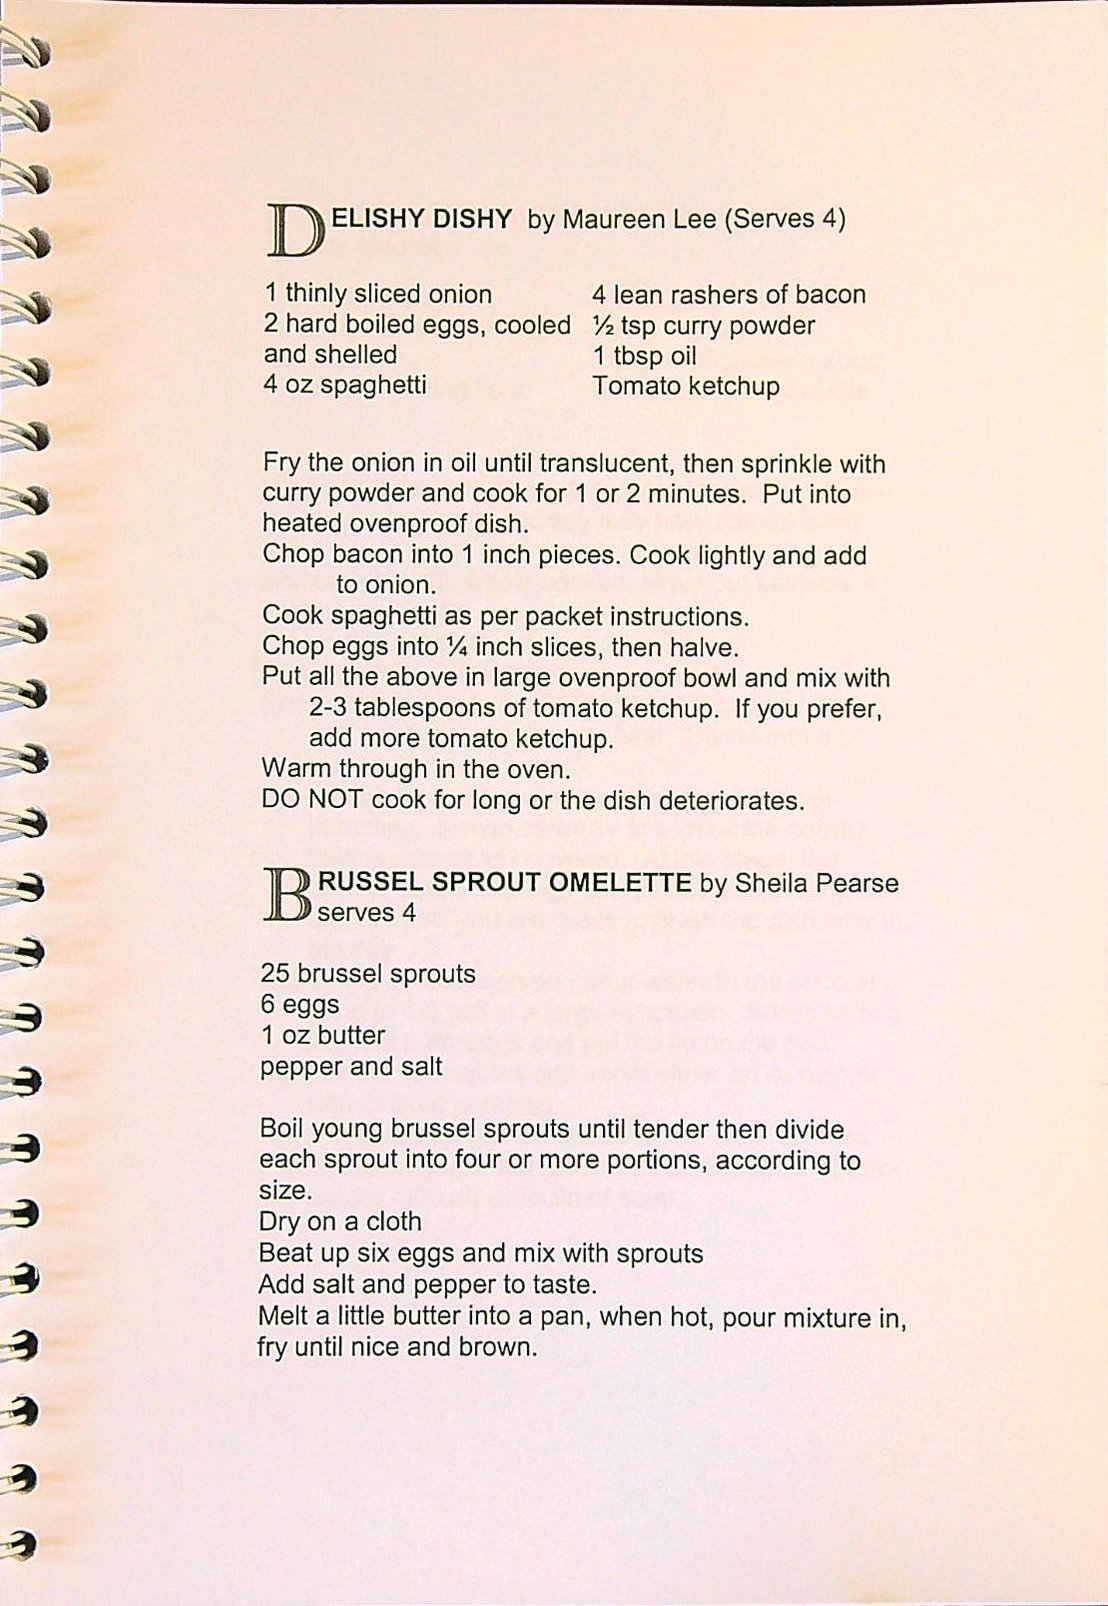 DELISHY DISHY by Maureen Lee (Serves 4)
1 thinly sliced onion
2 hard boiled eggs, cooled
and shelled
4 oz spaghetti
4 lean rashers of bacon
½ tsp curry powder
1 tbsp oil
Tomato ketchup
Fry the onion in oil until translucent, then sprinkle with
curry powder and cook for 1 or 2 minutes. Put into
heated ovenproof dish.
Chop bacon into 1 inch pieces. Cook lightly and add
to onion.
Cook spaghetti as per packet instructions.
Chop eggs into ¼ inch slices, then halve.
Put all the above in large ovenproof bowl and mix with
2-3 tablespoons of tomato ketchup. If you prefer,
add more tomato ketchup.
Warm through in the oven.
DO NOT cook for long or the dish deteriorates.
BRUSSEL SPROUT OMELETTE by Sheila Pearse
serves 4
25 brussel sprouts
6 eggs
1 oz butter
pepper and salt
Boil young brussel sprouts until tender then divide
each sprout into four or more portions, according to
size.
Dry on a cloth
Beat up six eggs and mix with sprouts
Add salt and pepper to taste.
Melt a little butter into a pan, when hot, pour mixture in,
fry until nice and brown.